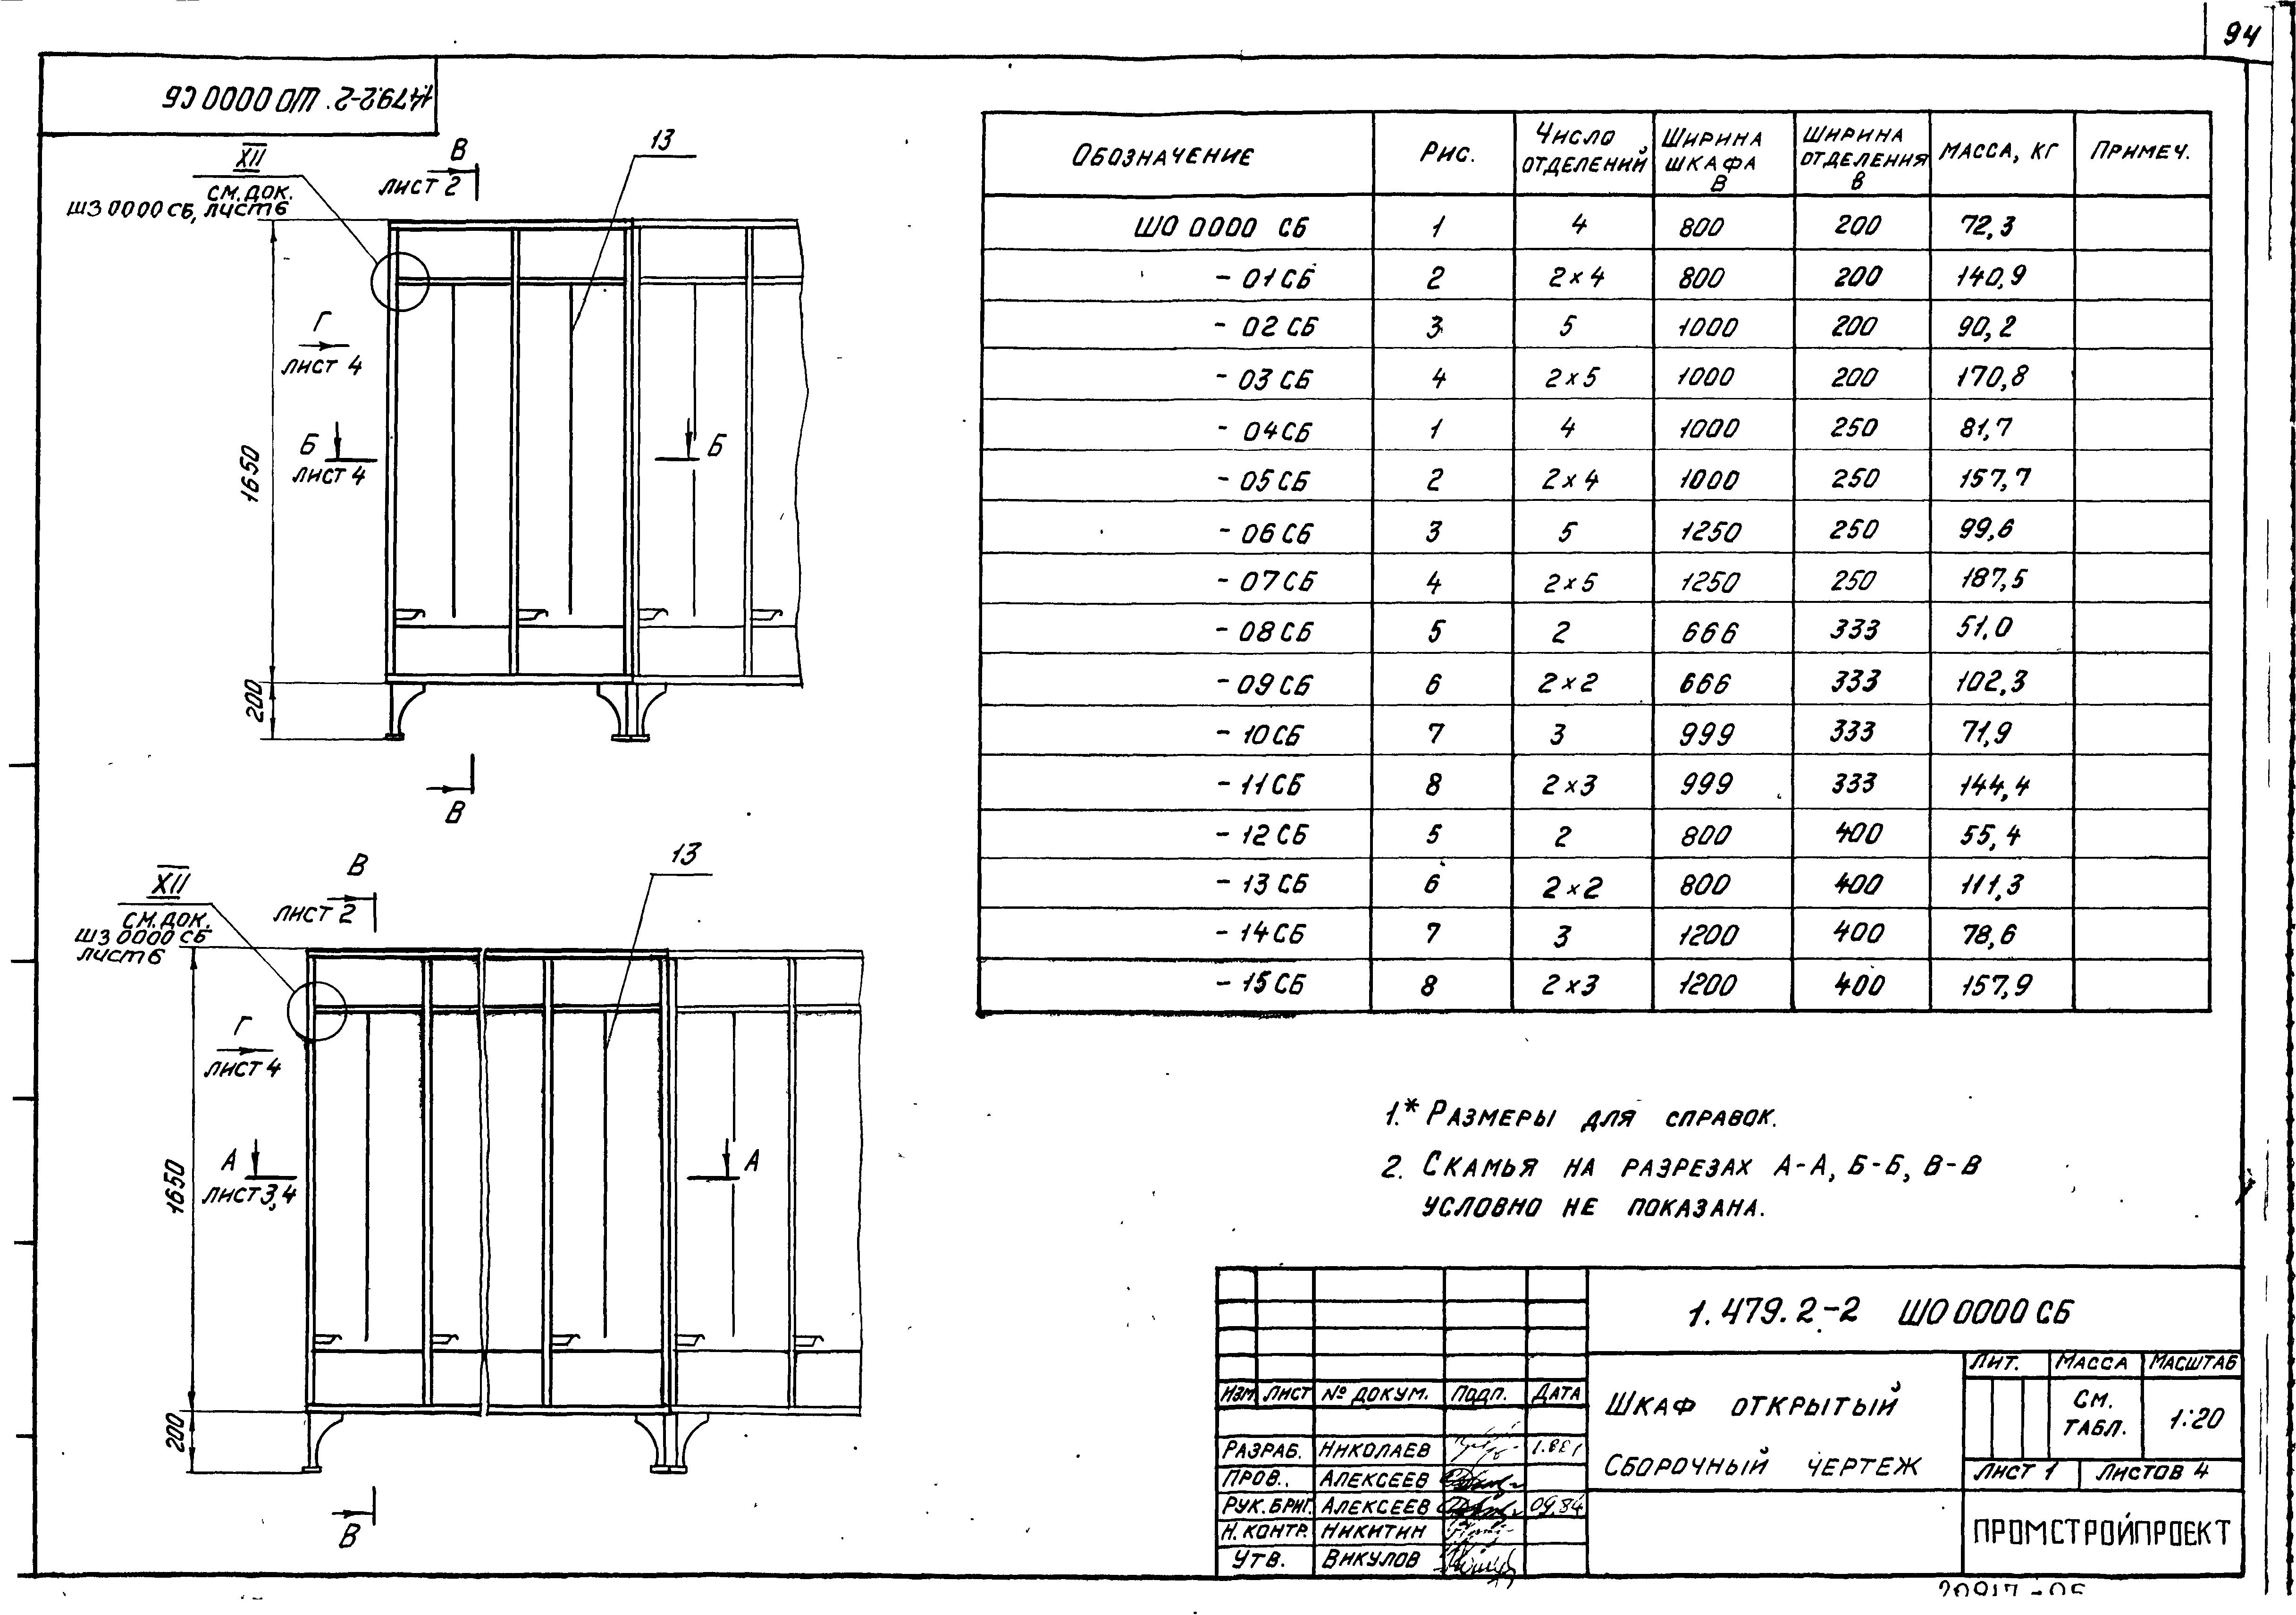 94
1.479.2-2. ШО 0000 СБ
XII
см. док.
ШЗ 0000 СБ, лист 6
В
лист 2
13
Г
лист 4
Б
лист 4
Б
1650
200
В
XII
см. док.
ШЗ 0000 СБ
лист 6
В
лист 2
13
Г
лист 4
А
лист 3,4
А
1650
200
В
Обозначение Рис. Число отделений Ширина шкафа В Ширина отделения в Масса, кг Примеч.
ШО 0000 СБ 1 4 800 200 72,3
- 01 СБ 2 2×4 800 200 140,9
- 02 СБ 3 5 1000 200 90,2
- 03 СБ 4 2×5 1000 200 170,8
- 04 СБ 1 4 1000 250 81,7
- 05 СБ 2 2×4 1000 250 157,7
- 06 СБ 3 5 1250 250 99,6
- 07 СБ 4 2×5 1250 250 187,5
- 08 СБ 5 2 666 333 51,0
- 09 СБ 6 2×2 666 333 102,3
- 10 СБ 7 3 999 333 71,9
- 11 СБ 8 2×3 999 333 144,4
- 12 СБ 5 2 800 400 55,4
- 13 СБ 6 2×2 800 400 111,3
- 14 СБ 7 3 1200 400 78,6
- 15 СБ 8 2×3 1200 400 157,9
1.* Размеры для справок.
2. Скамья на разрезах А-А, Б-Б, В-В
условно не показана.
1.479.2-2 ШО 0000 СБ
Изм. Лист № докум. Подп. Дата
Разраб. Николаев
Пров. Алексеев
Рук. бриг. Алексеев 09.84
Н. контр. Никитин
Утв. Викулов
Шкаф открытый
Сборочный чертеж
Лит. Масса Масштаб
См. табл. 1:20
Лист 1 Листов 4
ПРОМСТРОЙПРОЕКТ